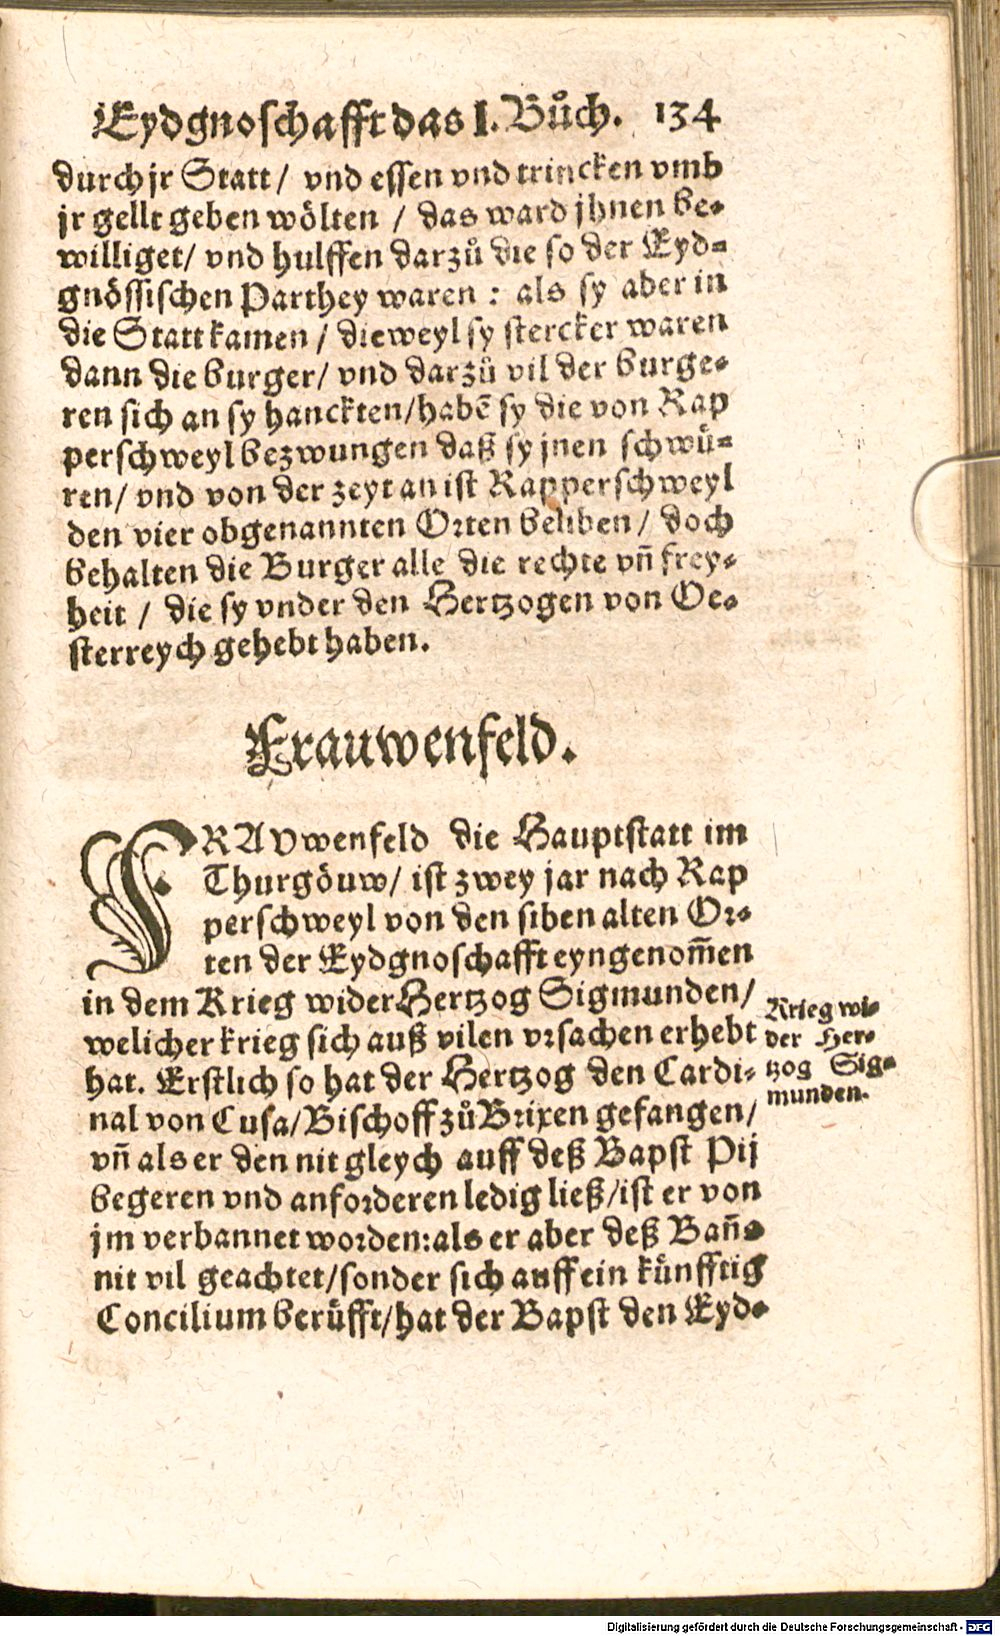 Eydgnoschafft das I. Bůch. 134
durch jr Statt / vnd essen vnd trincken vmb
jr gellt geben wölten / das ward jhnen be-
williget / vnd hulffen darzů die so der Eyd-
gnössischen Parthey waren : als sy aber in
die Statt kamen / dieweyl sy stercker waren
dann die burger / vnd darzů vil der burge-
ren sich an sy hanckten / habē sy die von Rap
perschweyl bezwungen daß sy jnen schwů-
ren / vnd von der zeyt an ist Rapperschweyl
den vier obgenannten Orten beliben / doch
behalten die Burger alle die rechte vñ frey-
heit / die sy vnder den Hertzogen von Oe-
sterreych gehebt haben.
Frauwenfeld.
FRAVwenfeld die Hauptstatt im
Thurgöuw / ist zwey jar nach Rap
perschweyl von den siben alten Or-
ten der Eydgnoschafft eyngenom̄en
in dem Krieg wider Hertzog Sigmunden /
welicher krieg sich auß vilen vrsachen erhebt
hat. Erstlich so hat der Hertzog den Cardi-
nal von Cusa / Bischoff zů Brixen gefangen /
vñ als er den nit gleych auff deß Bapst Pij
begeren vnd anforderen ledig ließ / ist er von
jm verbannet worden : als er aber deß Bañs
nit vil geachtet / sonder sich auff ein künfftig
Concilium berüfft / hat der Bapst den Eyd-
Krieg wi-
der Her-
tzog Sig-
munden.
Digitalisierung gefördert durch die Deutsche Forschungsgemeinschaft - DFG